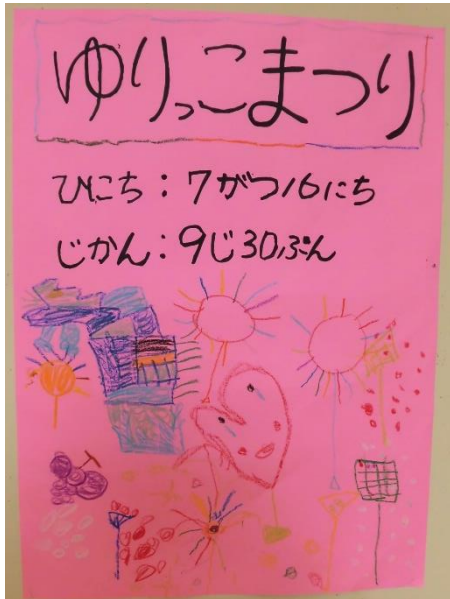 ゆりっこまつり
ひにち：7がつ16にち
じかん：9じ30ぷん